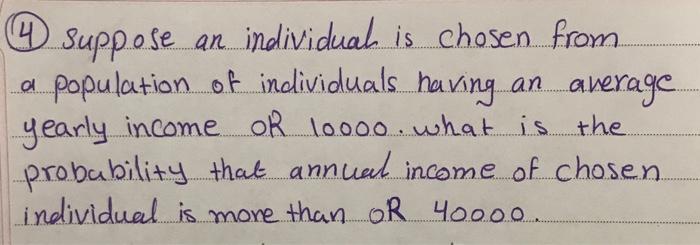 ④ Suppose an individual is chosen from
a population of individuals having an average
yearly income OR 10000. what is the
probability that annual income of chosen
individual is more than OR 40000.